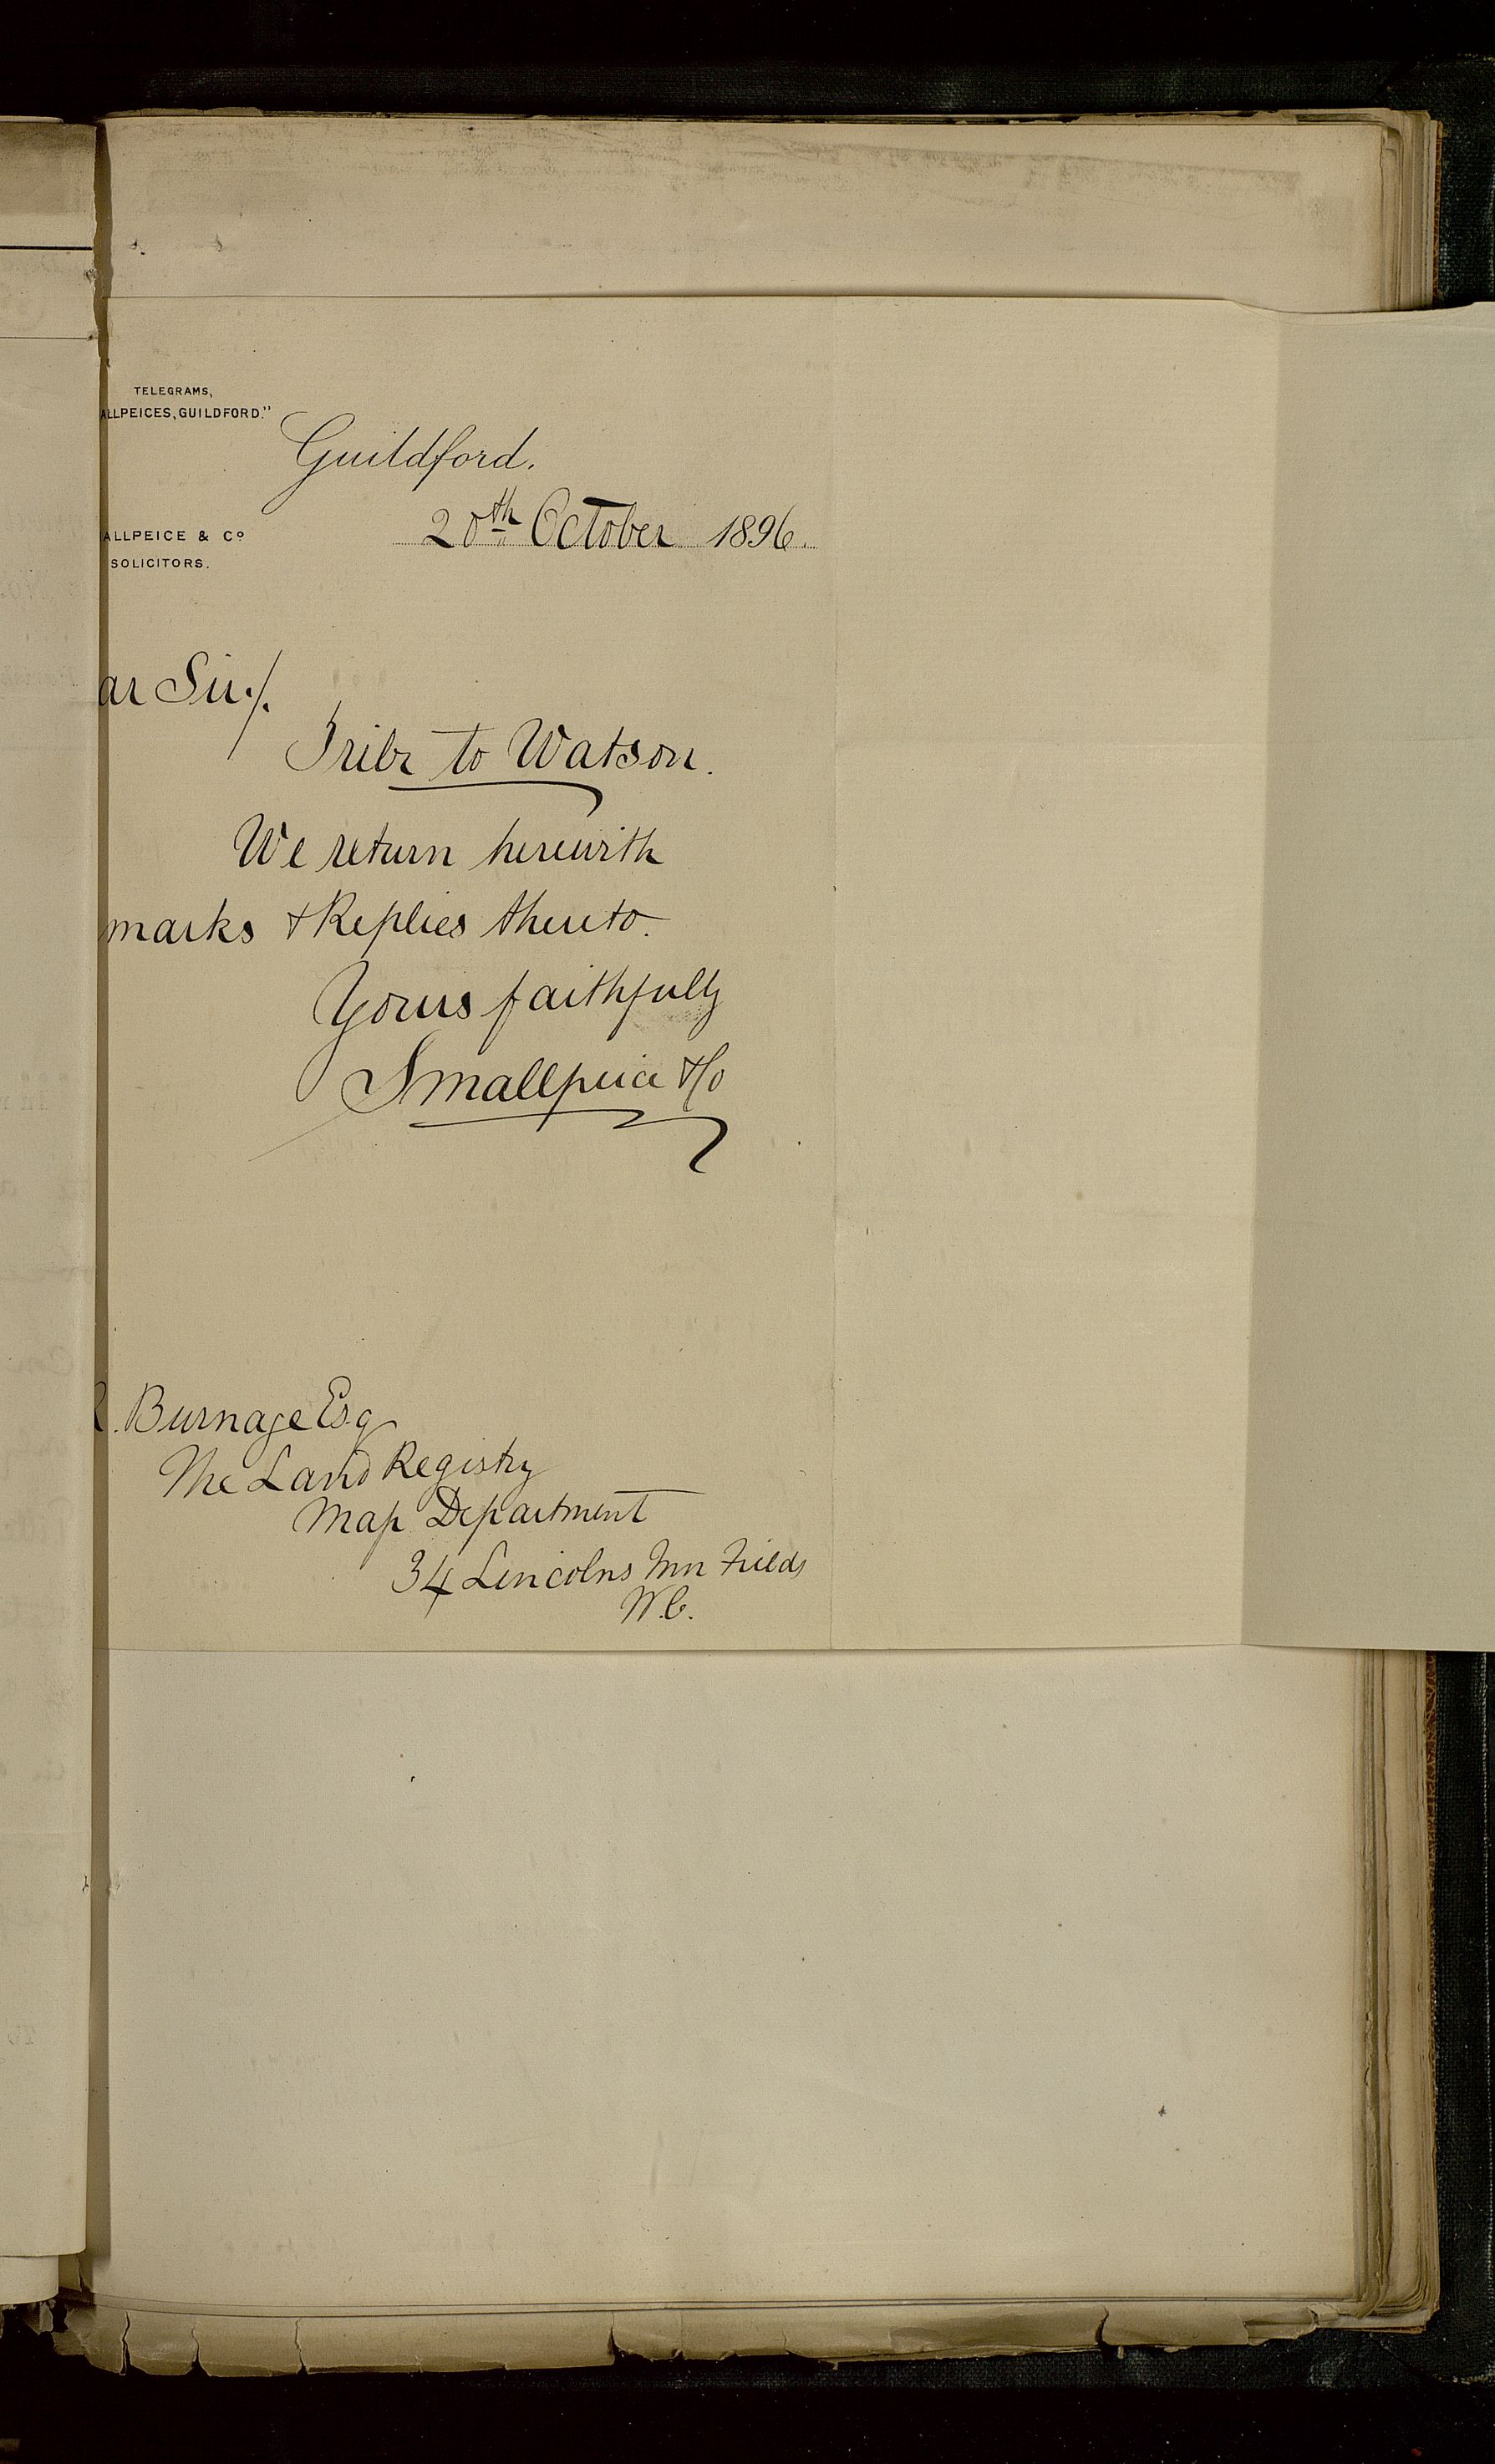 TELEGRAMS,
ALLPEICES, GUILDFORD."
Guildford.
20th October 1896.
ALLPEICE & Co
SOLICITORS.
ar Sir./.
to Watson.
We return herewith
marks & Replies thereto.
Yours faithfully
Smallpeice & Co
R. Burnage Esq
The Land Registry
Map Department
34 Lincolns Inn Fields
W.C.